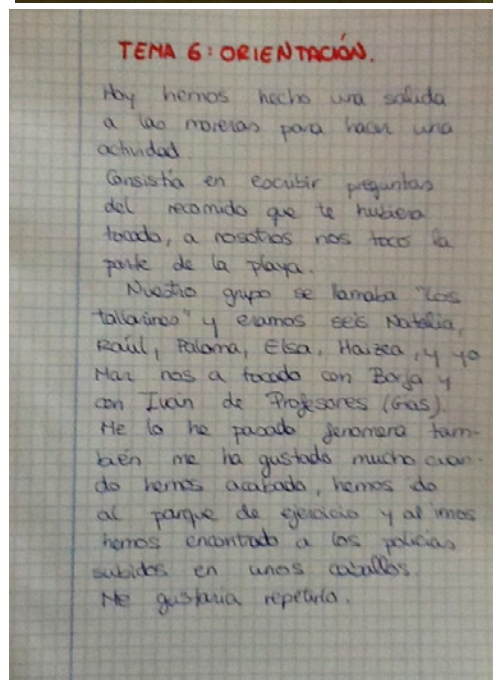 TEMA 6: ORIENTACIÓN.
Hoy hemos hecho una salida
a las moreras para hacer una
actividad.
Consistía en escribir preguntas
del recorrido que te hubiera
tocado, a nosotros nos toco la
parte de la playa.
Nuestro grupo se llamaba "Los
tallarines" y eramos seis Natalia,
Raúl, Paloma, Elsa, Haizea, y yo
Mar nos a tocado con Borja y
con Ivan de Profesores (Guas).
Me lo he pasado fenomena tam-
buén me ha gustado mucho cuan-
do hemos acabado, hemos ido
al parque de ejercicio y al irnos
hemos encontrado a los policias
subidos en unos caballos.
Me gustaria repetirlo.